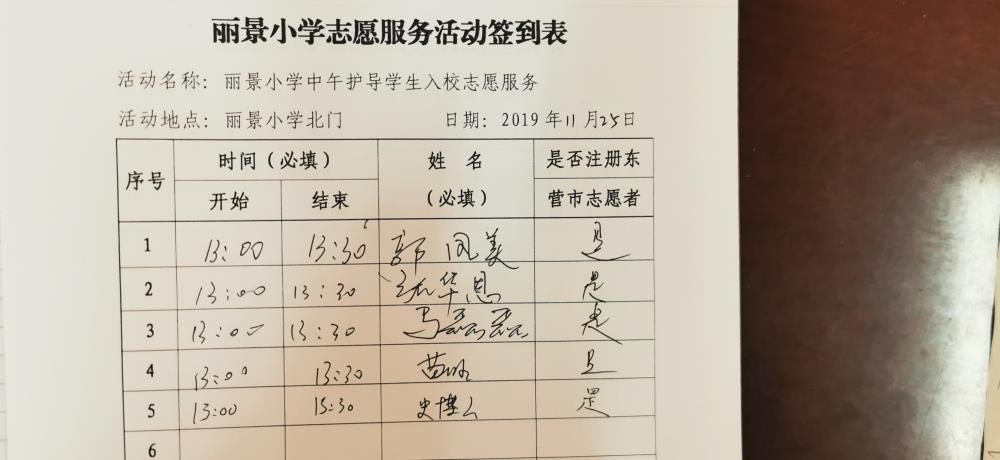 丽景小学志愿服务活动签到表
活动名称：丽景小学中午护导学生入校志愿服务
活动地点：丽景小学北门 日期：2019年11月25日
序号 时间（必填） 姓名 是否注册东
开始 结束 （必填） 营市志愿者
1 13:00 13:30 郭凤美 是
2 13:00 13:30 华恩 是
3 13:00 13:30 马磊磊 是
4 13:00 13:30 苗 是
5 13:00 13:30 史博 是
6